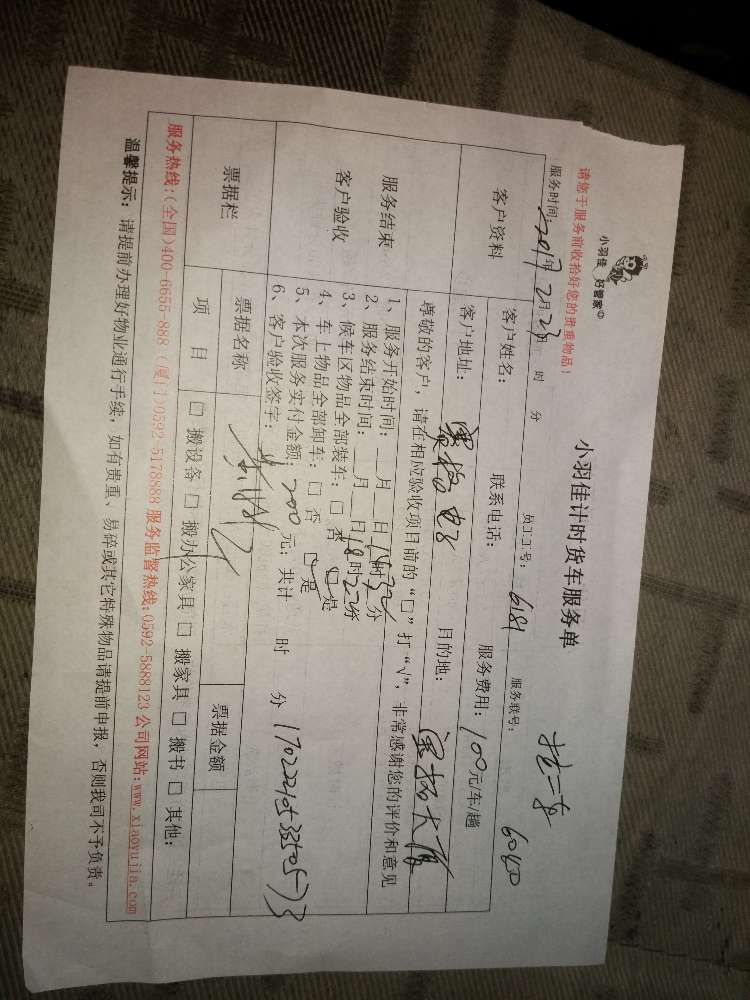 小羽佳 好管家
请您于服务前收拾好您的贵重物品！
小羽佳计时货车服务单
服务时间：2017年2月23日 时 分 员工工号：6181 服务联号： 60450
客户资料 客户姓名： 联系电话： 服务费用：100元/车/趟
客户地址： 电子 目的地： 大厦
服务结束
客户验收
尊敬的客户，请在相应验收项目前的“□”打“√”，非常感谢您的评价和意见
1、服务开始时间： 月 日 时 分
2、服务结束时间： 月 日18时22分
3、候车区物品全部装车：□ 否 □ 是
4、车上物品全部卸车：□ 否 □ 是
5、本次服务实付金额：200元；共计 时 分
6、客户验收签字：
票据栏 票据名称 票据金额
项 目 □ 搬设备 □ 搬办公家具 □ 搬家具 □ 搬书 □ 其他：
服务热线：(全国)400-6655-888 (厦门)0592-5178888 服务监督热线：0592-5888123 公司网站：www.xiaoyujia.com
温馨提示：请提前办理好物业通行手续，如有贵重、易碎或其它特殊物品请提前申报，否则我司不予负责。